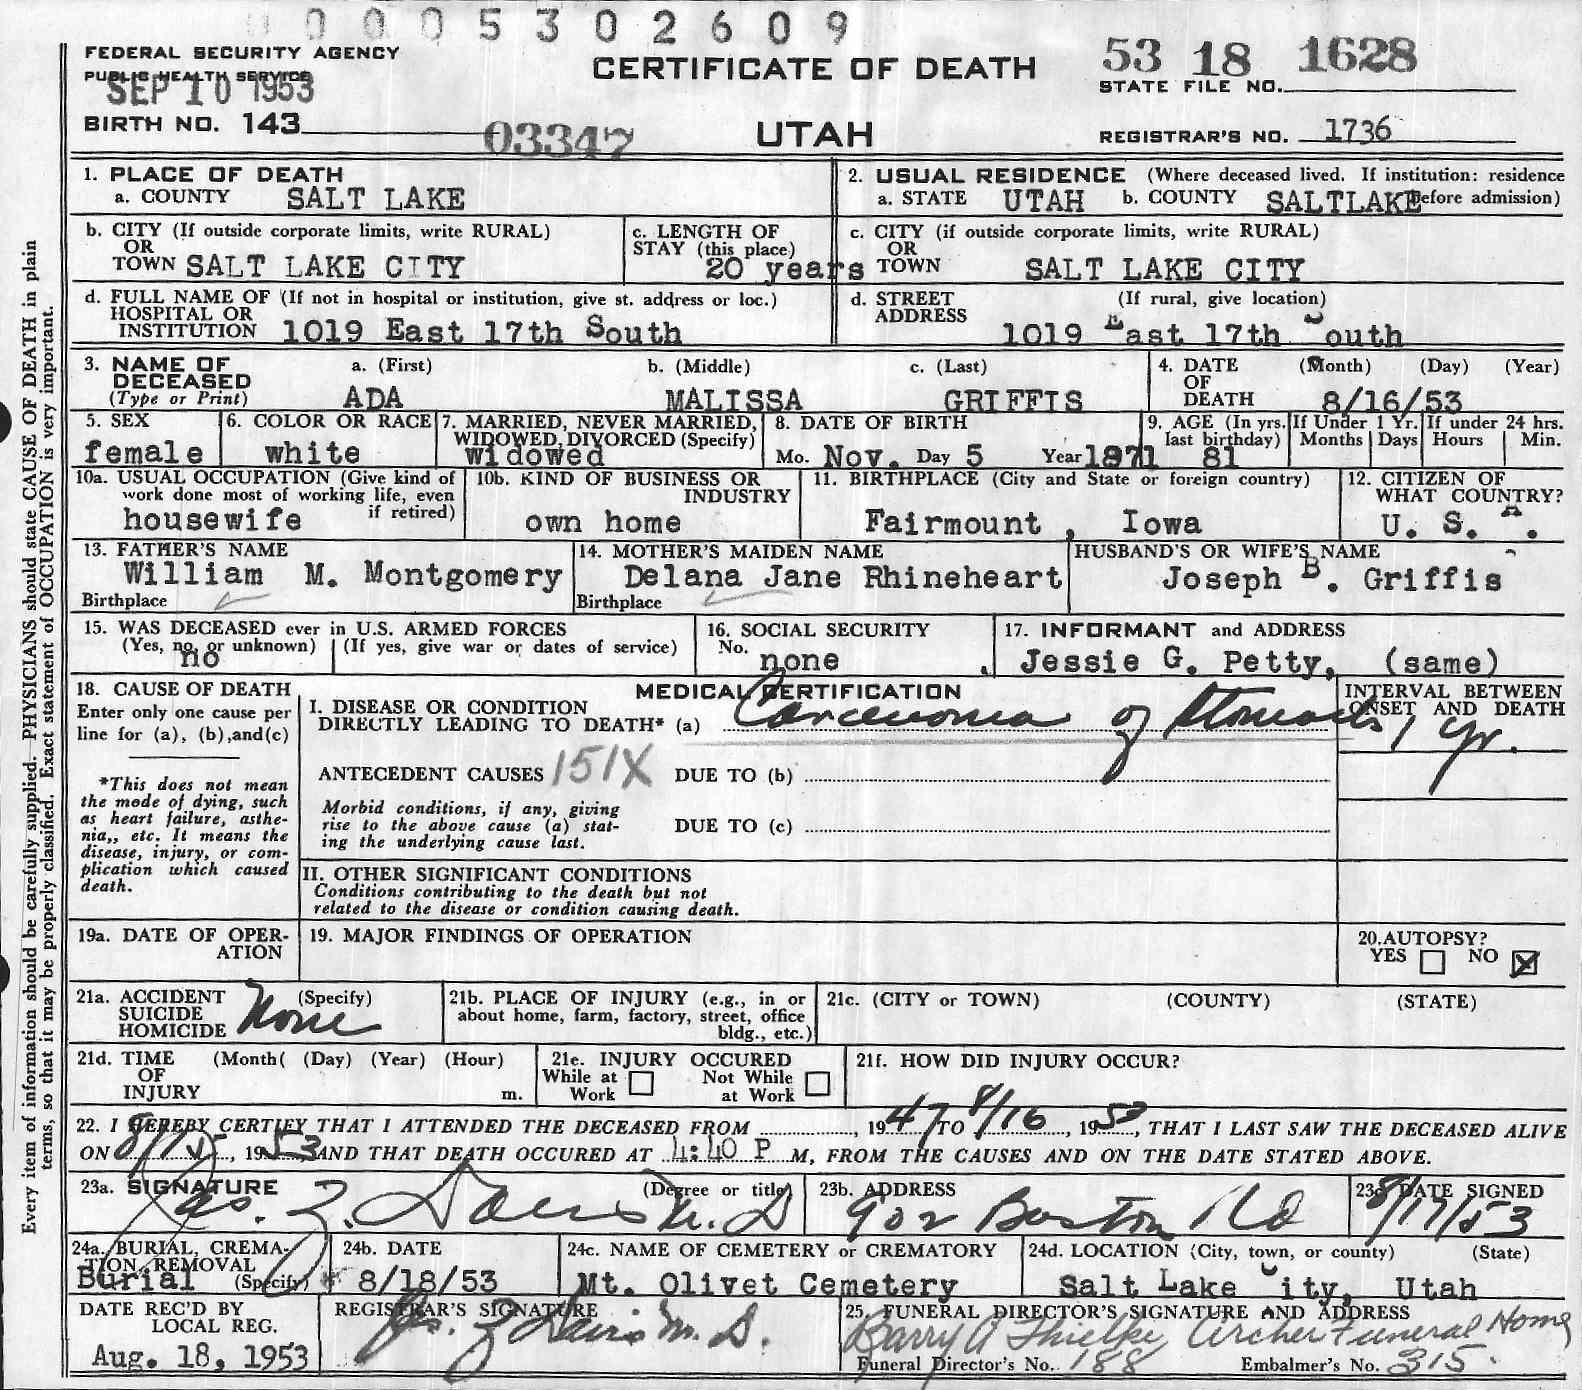 0005302609
FEDERAL SECURITY AGENCY
PUBLIC HEALTH SERVICE
SEP 10 1953
CERTIFICATE OF DEATH
53 18 1628
STATE FILE NO.
BIRTH NO. 143
03347
UTAH
REGISTRAR'S NO. 1736
1. PLACE OF DEATH
a. COUNTY SALT LAKE
2. USUAL RESIDENCE (Where deceased lived. If institution: residence before admission)
a. STATE UTAH b. COUNTY SALTLAKE
b. CITY (If outside corporate limits, write RURAL)
OR
TOWN SALT LAKE CITY
c. LENGTH OF
STAY (this place)
20 years
c. CITY (if outside corporate limits, write RURAL)
OR
TOWN SALT LAKE CITY
d. FULL NAME OF (If not in hospital or institution, give st. address or loc.)
HOSPITAL OR
INSTITUTION 1019 East 17th South
d. STREET (If rural, give location)
ADDRESS 1019 East 17th South
3. NAME OF DECEASED (Type or Print)
a. (First) b. (Middle) c. (Last)
ADA MALISSA GRIFFIS
4. DATE OF DEATH (Month) (Day) (Year)
8/16/53
5. SEX
female
6. COLOR OR RACE
white
7. MARRIED, NEVER MARRIED,
WIDOWED, DIVORCED (Specify)
widowed
8. DATE OF BIRTH
Mo. Nov. Day 5 Year 1871
9. AGE (In yrs. last birthday)
81
If Under 1 Yr. Months Days
If under 24 hrs. Hours Min.
10a. USUAL OCCUPATION (Give kind of
work done most of working life, even
if retired)
housewife
10b. KIND OF BUSINESS OR
INDUSTRY
own home
11. BIRTHPLACE (City and State or foreign country)
Fairmount, Iowa
12. CITIZEN OF
WHAT COUNTRY?
U. S. A.
13. FATHER'S NAME
William M. Montgomery
Birthplace
14. MOTHER'S MAIDEN NAME
Delana Jane Rhineheart
Birthplace
HUSBAND'S OR WIFE'S NAME
Joseph B. Griffis
15. WAS DECEASED ever in U.S. ARMED FORCES
(Yes, no, or unknown) (If yes, give war or dates of service)
no
16. SOCIAL SECURITY
No. none
17. INFORMANT and ADDRESS
Jessie G. Petty, (same)
18. CAUSE OF DEATH
Enter only one cause per
line for (a), (b), and(c)
*This does not mean
the mode of dying, such
as heart failure, asthe-
nia,, etc. It means the
disease, injury, or com-
plication which caused
death.
MEDICAL CERTIFICATION
I. DISEASE OR CONDITION
DIRECTLY LEADING TO DEATH* (a) Carcenoma of Stomach
INTERVAL BETWEEN
ONSET AND DEATH
1 Yr.
ANTECEDENT CAUSES 151X DUE TO (b)
Morbid conditions, if any, giving
rise to the above cause (a) stat-
ing the underlying cause last.
DUE TO (c)
II. OTHER SIGNIFICANT CONDITIONS
Conditions contributing to the death but not
related to the disease or condition causing death.
19a. DATE OF OPER-
ATION
19. MAJOR FINDINGS OF OPERATION
20. AUTOPSY?
YES NO X
21a. ACCIDENT (Specify)
SUICIDE
HOMICIDE None
21b. PLACE OF INJURY (e.g., in or
about home, farm, factory, street, office
bldg., etc.)
21c. (CITY or TOWN) (COUNTY) (STATE)
21d. TIME (Month( (Day) (Year) (Hour)
OF
INJURY m.
21e. INJURY OCCURED
While at Work Not While at Work
21f. HOW DID INJURY OCCUR?
22. I HEREBY CERTIFY THAT I ATTENDED THE DECEASED FROM , 1947 TO 8/16, 1953, THAT I LAST SAW THE DECEASED ALIVE
ON 8/15, 1953, AND THAT DEATH OCCURED AT 4:40 P M, FROM THE CAUSES AND ON THE DATE STATED ABOVE.
23a. SIGNATURE (Degree or title)
Jas. Z. Davis M. D
23b. ADDRESS
902 Boston Bld
23c. DATE SIGNED
8/17/53
24a. BURIAL, CREMA-
TION, REMOVAL
(Specify)
Burial
24b. DATE
8/18/53
24c. NAME OF CEMETERY or CREMATORY
Mt. Olivet Cemetery
24d. LOCATION (City, town, or county) (State)
Salt Lake City, Utah
DATE REC'D BY
LOCAL REG.
Aug. 18, 1953
REGISTRAR'S SIGNATURE
Jas. Z Davis M. D.
25. FUNERAL DIRECTOR'S SIGNATURE AND ADDRESS
Barry A Thielke Archer Funeral Home
Funeral Director's No. 188 Embalmer's No. 315.
Every item of information should be carefully supplied. PHYSICIANS should state CAUSE OF DEATH in plain
terms, so that it may be properly classified. Exact statement of OCCUPATION is very important.